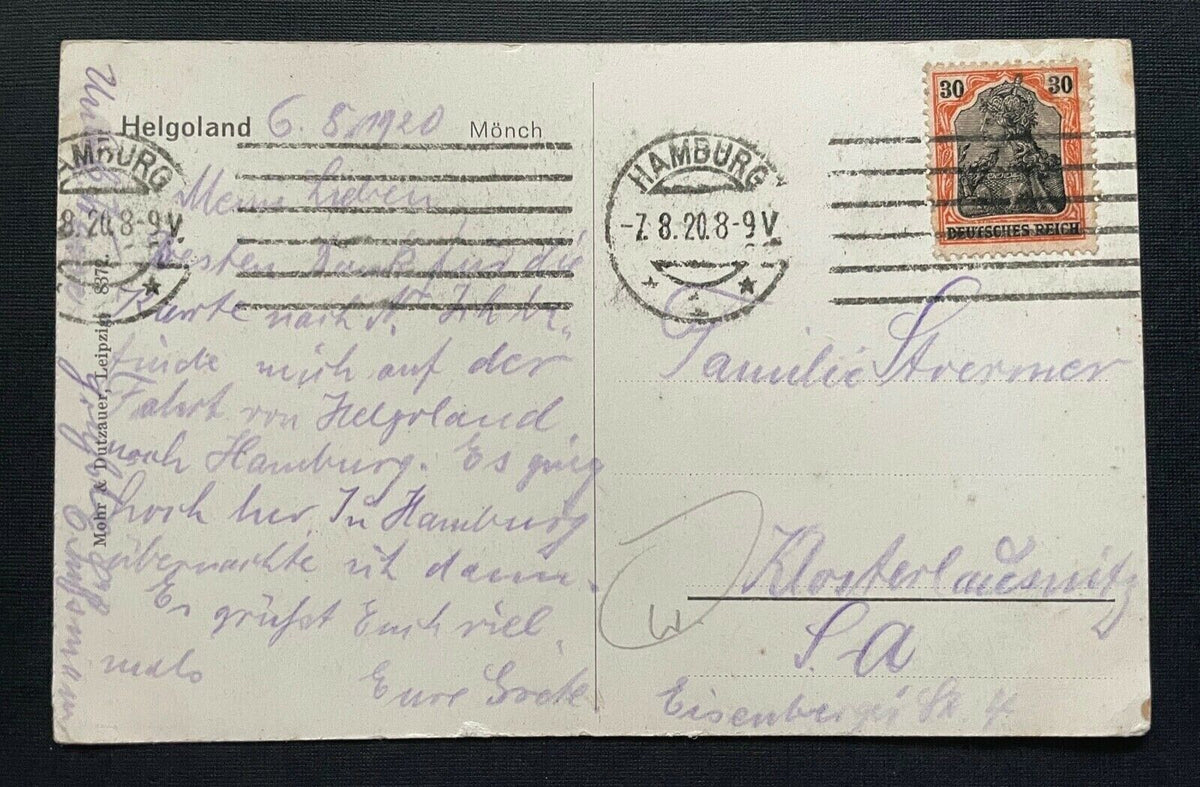 Helgoland 6. 8. 1920 Mönch
Meine Lieben
Besten Dank für die
Karte nach N. Ich be-
finde mich auf der
Fahrt von Helgoland
nach Hamburg. Es ging
hoch her. In Hamburg
übernachte ich dann.
Es grüßt Euch viel-
mals
Eure Grete
Mohr & Dutzauer, Leipzig
AMBURG
8.20.8-9V
HAMBURG
-7.8.20.8-9V
1
30 30
DEUTSCHES REICH
Familie Stoermer
Klosterlausnitz
S. A
Eisenberger Str. 4